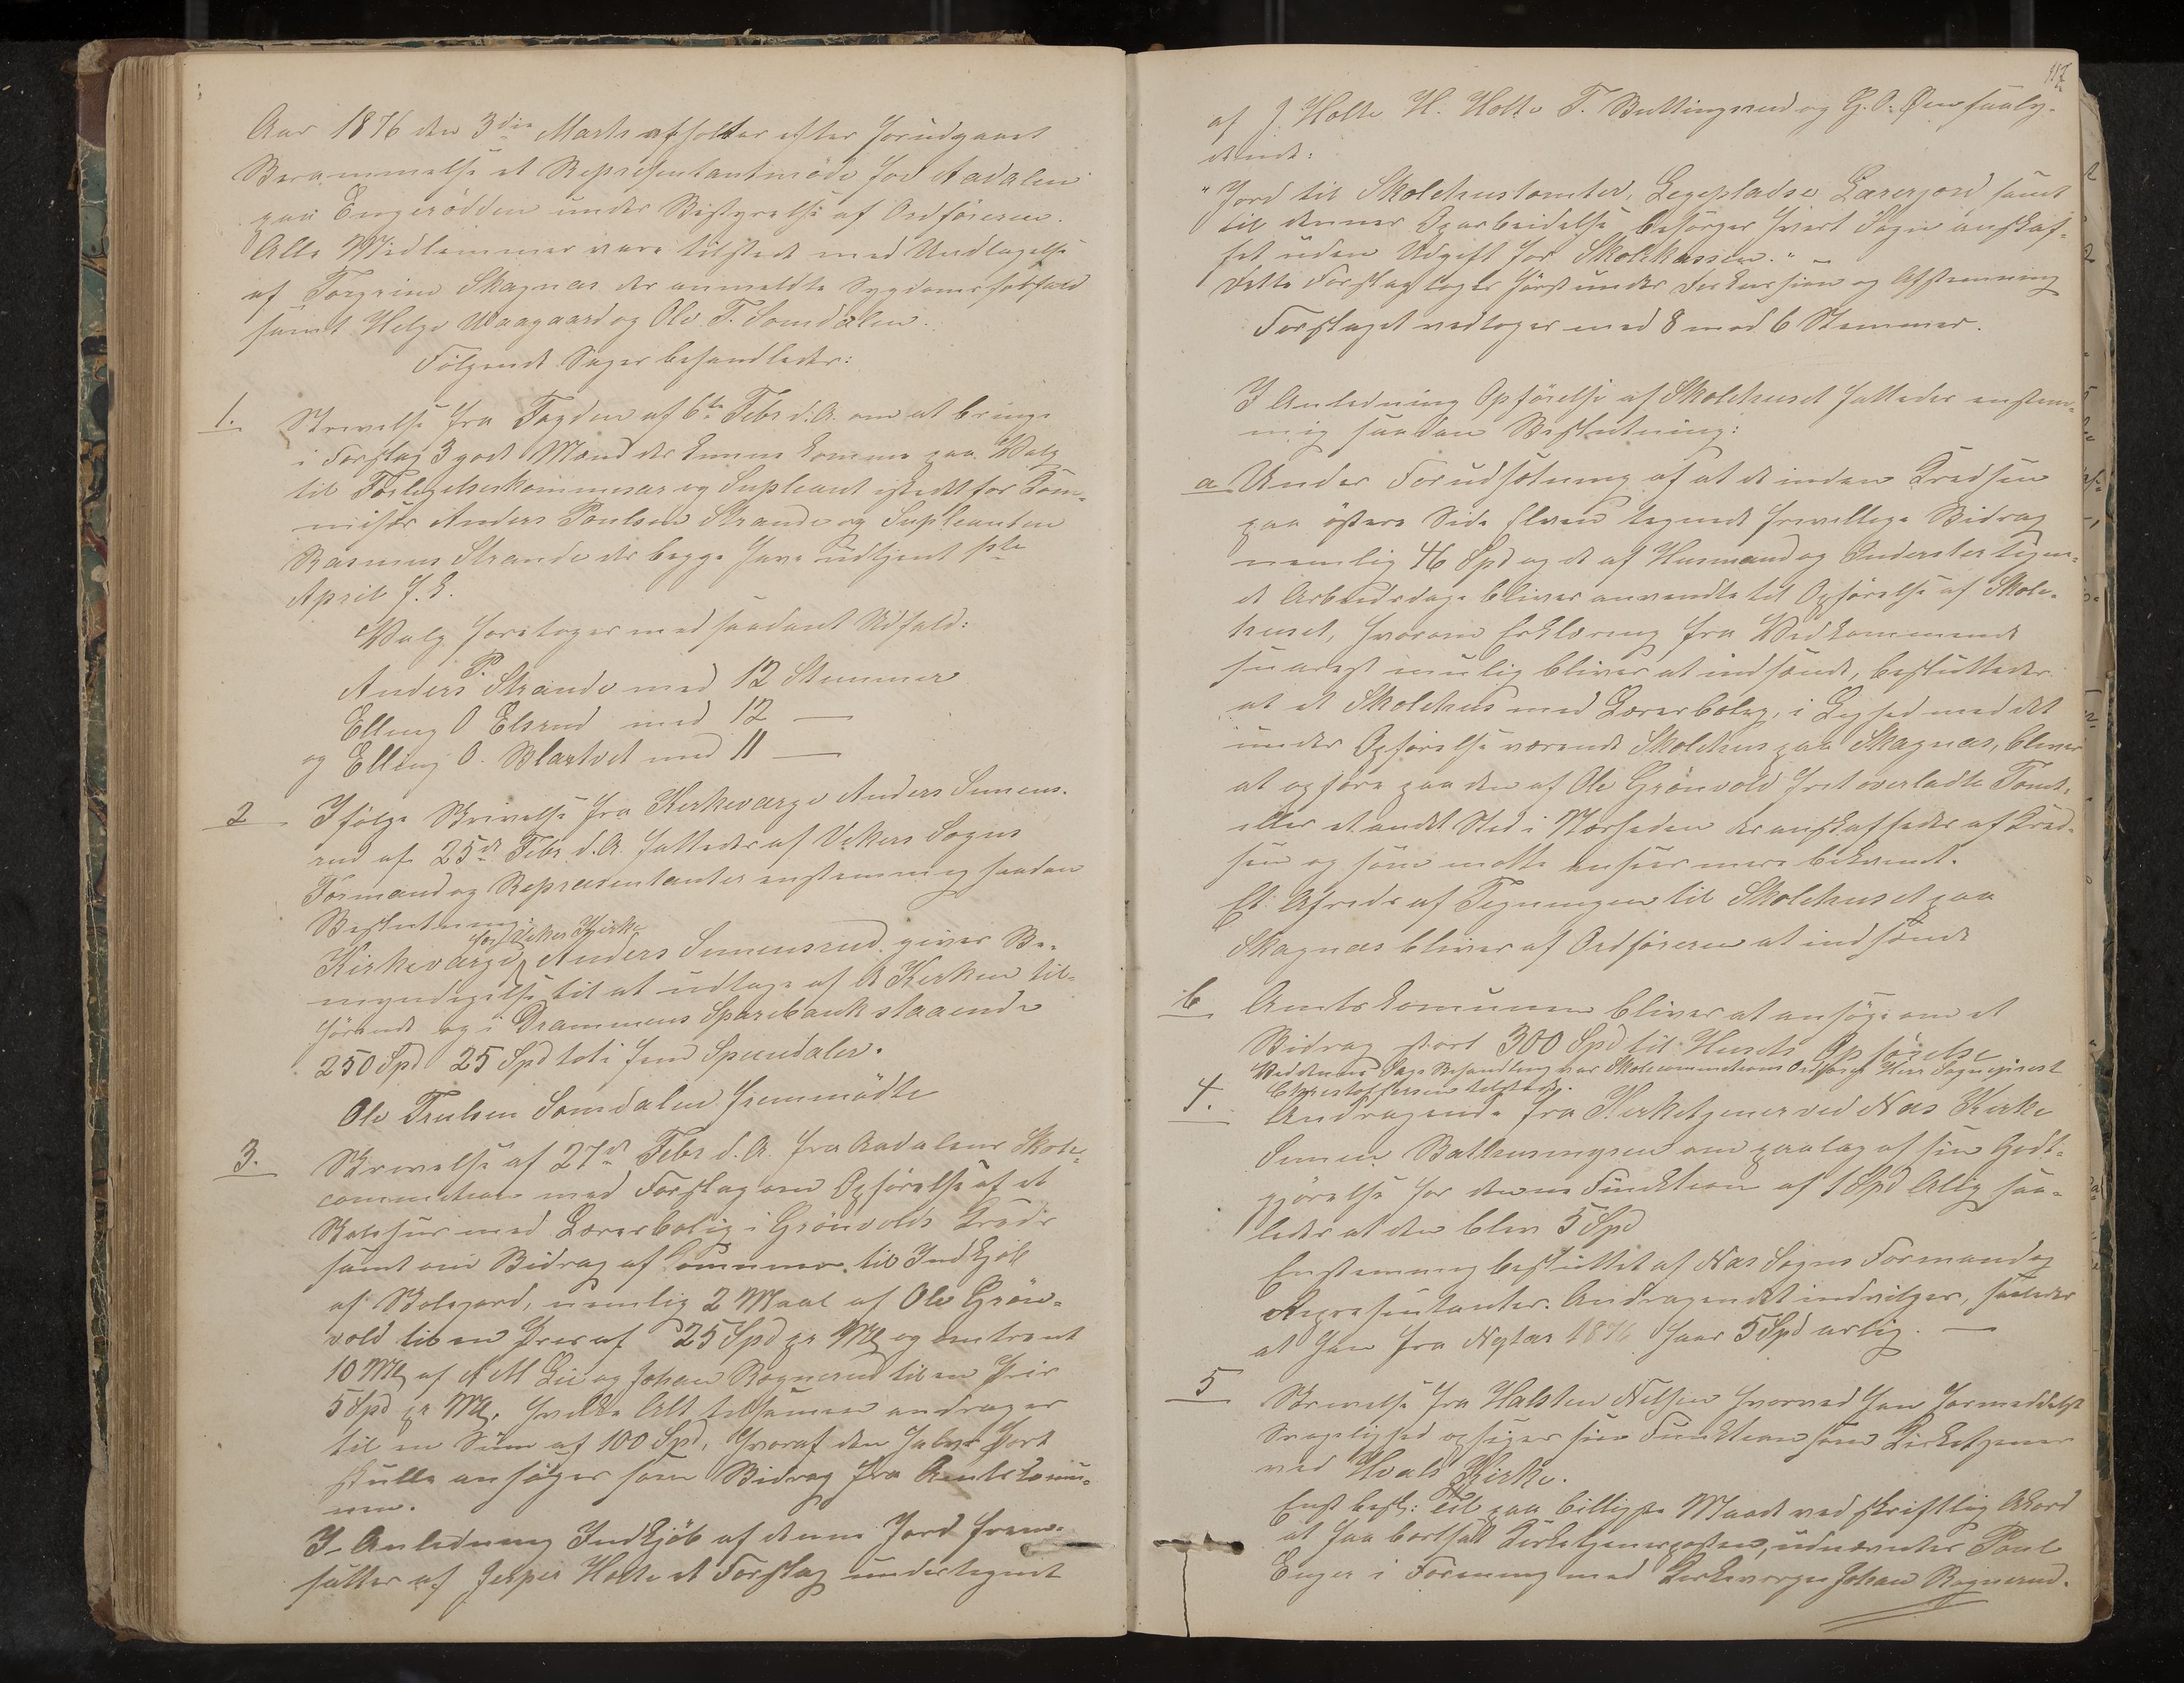 Aar 1876 den 3die Marts afholdes efter forudgaaet
Berammelse et Representantmøde for Aadalen
paa Engerodden under Bestyrelse af Ordføreren.
Alle Medlemmer vare tilstede med Undtagelse
af Torgrim Skagnæs der anmeldte Sygdomsforfald
samt Helge Waagaard og Ole T. Somdalen.
Følgende Sager behandledes:
1. Skrivelse fra Fogden af 6te Febr d. A. om at bringe
i Forslag 3 gode Mænd der kunne komme paa Valg
til Forligelseskommisær og Supleant istedet for Kom-
misær Anders Poulsen Strande og Supleanten
Rasmus Strande der begge have udtjent 1ste
April f. k.
Valg foretoges med saadant Udfald:
Anders P. Strande med 12 Stemmer
Elling O Elsrud med 12 —
og Elling O. Blartvet med 11 —
2 Ifølge Skrivelse fra Kirkeværge Anders Simens-
rud af 25de Febr d. A. fattedes af Vikers Sogns
Formænd og Repræsentanter enstemmig saadan
Beslutning:
Kirkeværge for Viker Kirke Anders Simensrud gives Be-
myndigelse til at udtage af de Kirken til-
hørende og i Drammens Sparebank staaende
250 Spd 25 Spd toti fem Speciedaler.
Ole Trulsen Somdalen fremmødte
3. Skrivelse af 27de Febr d. A. fra Aadalens Skole-
commission med Forslag om Opførelse af et
Skolehus med Lærerbolig i Grønvolds Kreds
samt om Bidrag af Communen til Indkjøb
af Skolejord, nemlig 2 Maal af Ole Grøn-
vold til en Pris af 25 Spd pr Ml og omtrent
10 Ml af A M Lie og Johan Rognerud til en Pris
5 Spd pr Ml. hvilke Alt tilsammen andrager
til en Sum af 100 Spd, hvoraf den halve Part
skulle ansøges som Bidrag fra Amtskommu-
nen.
I Anledning Indkjøb af denne Jord frem-
sattes af Jesper Holte et Forslag undertegnet
117
af J. Holte H. Holte T. Buttingsrud og G. O. Øen saaly-
dende:
"Jord til Skolehustomter, Legeplads, Lærerjord samt
til dennes Oparbeidelse besørger hvert Sogn anskaf-
fet uden Udgift for Skolekassen." –
Dette Forslag toges først under Diskussion og Afstemning
Forslaget vedtoges med 8 mod 6 Stemmer.
I Anledning Opførelse af Skolehuset fattedes enstem-
mig saadan Beslutning:
a Under Forudsætning af at de inden Kredsen
paa østere Side Elven tegnede frivillige Bidrag
nemlig 46 Spd og de af Husmænd og Inderster tegne-
de Arbeidsdage bliver anvendte til Opførelse af Skole-
huset, hvorom Erklæring fra Vedkommende
snarest mulig bliver at indsende, besluttedes
at et Skolehus med Lærerbolig, i Lighed med det
under Opførelse værende Skolehus paa Skagnæs, bliver
at opføre paa den af Ole Grønvold frit overladte Tomt,
eller et andet Sted i Nærheden der anskaffedes af Kred-
sen og som matte ansees mere bekvemt.
Et Afrids af Tegningen til Skolehuset paa
Skagnæs bliver af Ordføreren at indsende
b Amtskommunen bliver at ansøge om et
Bidrag stort 300 Spd til Husets Opførelse
Ved denne Sags Behandling var Skolecommissionens Ordfører Herr Sogneprest
Christoffersen tilstede.
4. Andragende fra Kirketjener ved Næs Kirke
Simen Bakkusmyren om paalag af sin Godt-
gjørelse for denne Funktion af 1 Spd Alig saa-
ledes at den blev 5 Spd
Enstemmig besluttet af Næs Sogns Formænd og
Repræsentanter: Andragendet indvilges, saaledes
at han fra Nytaar 1876 faar 5 Spd aarlig. —
5 Skrivelse fra Halsten Nilsen hvorved han formedelst
Svagelighed opsiger sin Funktion som Kirketjener
ved Hvals Kirke.
Enst besl: Til paa billigste Maade ved skriftlig Akord
at faa bortsatt Kirketjenerposten, udnævntes Poul
Enger i Forening med Kirkeværge Johan Rognerud.